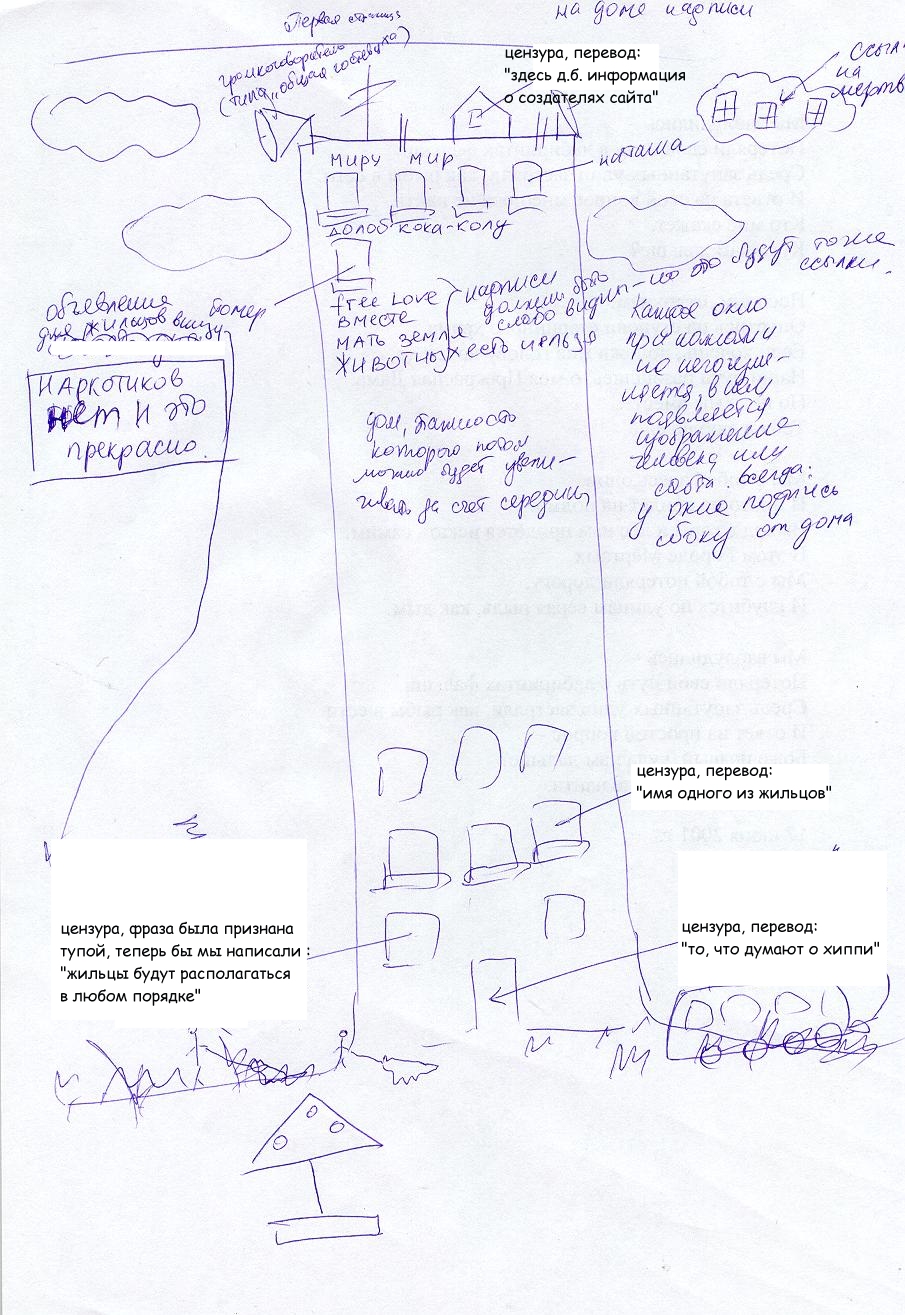 на доме надписи
Первая страница
громкоговоритель
(типа "общая гостевуха")
цензура, перевод:
"здесь д.б. информация
о создателях сайта"
ссыл-
на
мертв
миру мир
наташа
долоб кока-колу
free love
вместе
мать земля
животных есть нельзя
надписи
должны быть
слабо видны – но это будут тоже
ссылки.
объевления
для жильцов внизу
номер
Наркотиков
нет и это
прекрасно.
Каждое окно
при нажатии
на него
в нем
появляется
изображение
человека, или
сайта всегда:
у окна подпись
сбоку от дома
дом, этажность
которого потом
можно будет увели-
чивать за счет середины
цензура, перевод:
"имя одного из жильцов"
цензура, фраза была признана
тупой, теперь бы мы написали :
"жильцы будут располагаться
в любом порядке"
цензура, перевод:
"то, что думают о хиппи"